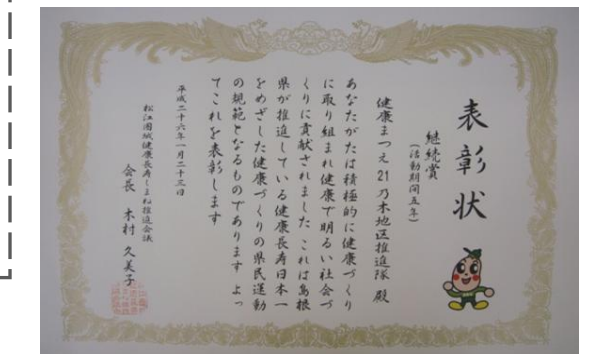 表彰状
継続賞
(活動期間五年)
健康まつえ21乃木地区推進隊 殿
あなたがたは積極的に健康づくり
に取り組まれ健康で明るい社会づ
くりに貢献されました これは島根
県が推進している健康長寿日本一
をめざした健康づくりの県民運動
の規範となるものであります よっ
てこれを表彰します
平成二十六年一月二十三日
松江圏域健康長寿しまね推進会議
会長 木村 久美子